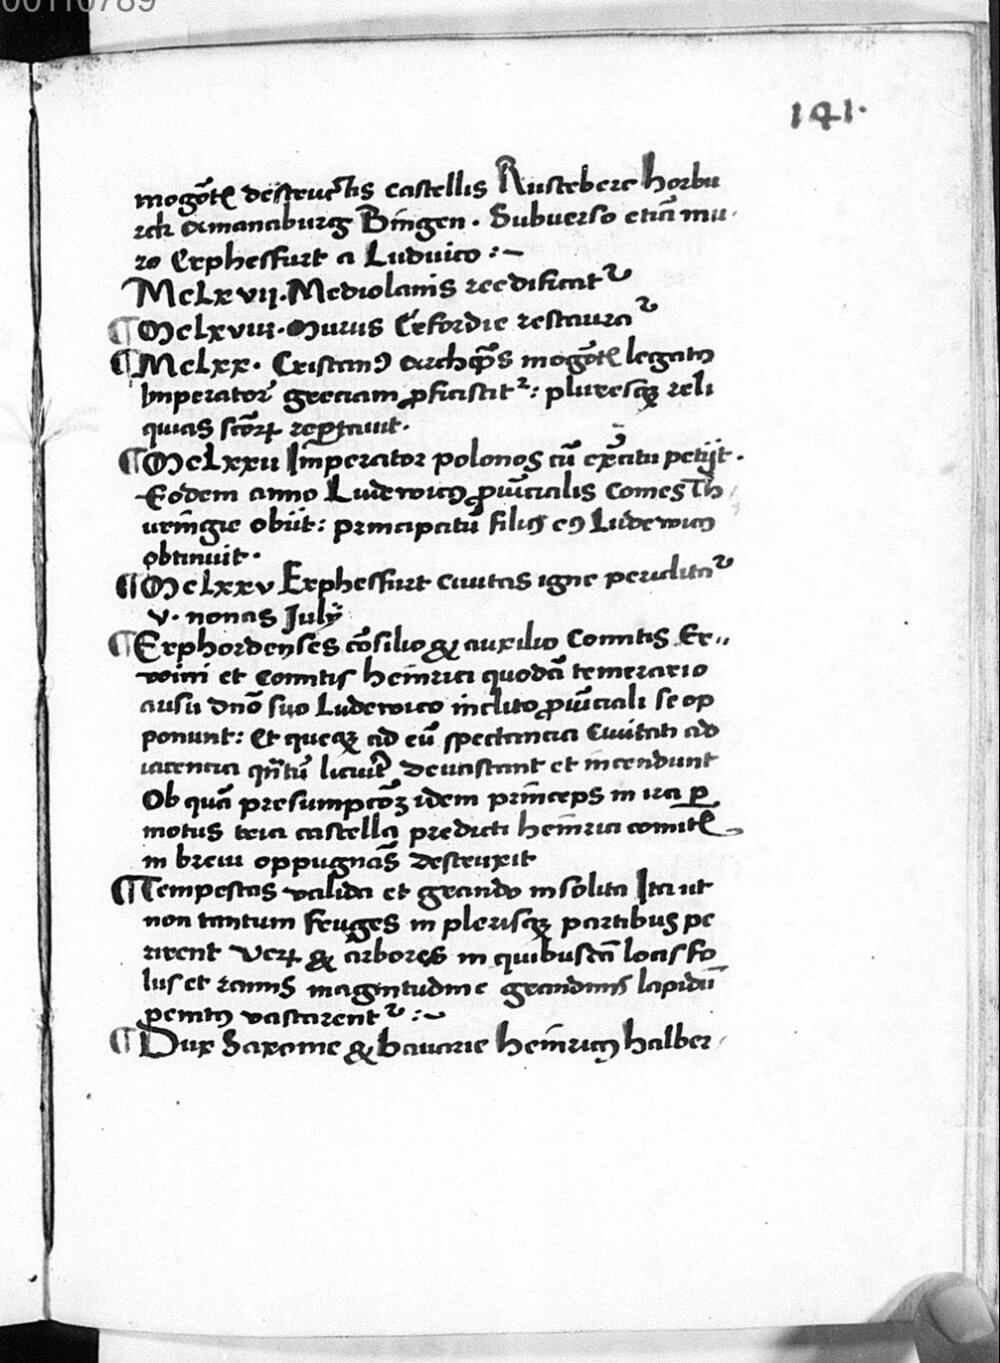 00110789
141.
mogōtꝭ destructis castellis Rusteberc horbu
rck amanaburg Bingen. Subuerso etiā mu-
ro Erphesfurt a Luduico :~
MCLxvii. Mediolanis reedificat᷑
¶ MCLxviii. Murus Erfordie restaura᷑
¶ MCLxx. Cristanꝯ archep̄s mogōtꝭ legatꝰ
Imperatorꝭ greciam ꝓficiscit᷑: pluresqꝫ reli
quias sctōꝝ reportauit.
¶ MCLxxii Imperator polonos cū ex̄citu petijt.
Eodem anno Ludewicꝰ ꝓuīcialis Comes Th-
uringie obiit: principatū filiꝰ eꝯ Ludewicꝰ
obtinuit.
¶ MCLxxv Erphesfurt ciuitas igne periclita᷑
v. nonas Julij
¶ Erphordenses cōsilio & auxilio Comitis Er-
wini et Comitis heinrici quodā temerario
ausu dn̄o suo Ludewico inclito ꝓuīciali se op
ponunt: Et queqꝫ ad eū spectancia Ciuitati ad
iacencia qn̄tū licuit deuastant et incendunt
Ob quā presumpcōꝫ idem princeps in ira ꝑ
motus tria castella predicti heinrici comitꝭ
in breui oppugnās destruxit
¶ Tempestas valida et grando insolita Ita ut
non tantum fruges in plerisqꝫ partibus pe
rirent Veꝝ & arbores in quibusdā locis fo
liis et ramis magnitudine grandinis lapidū
penitꝰ vastarent᷑ :~
¶ Dux Saxonie & bauarie heinricꝰ halber-